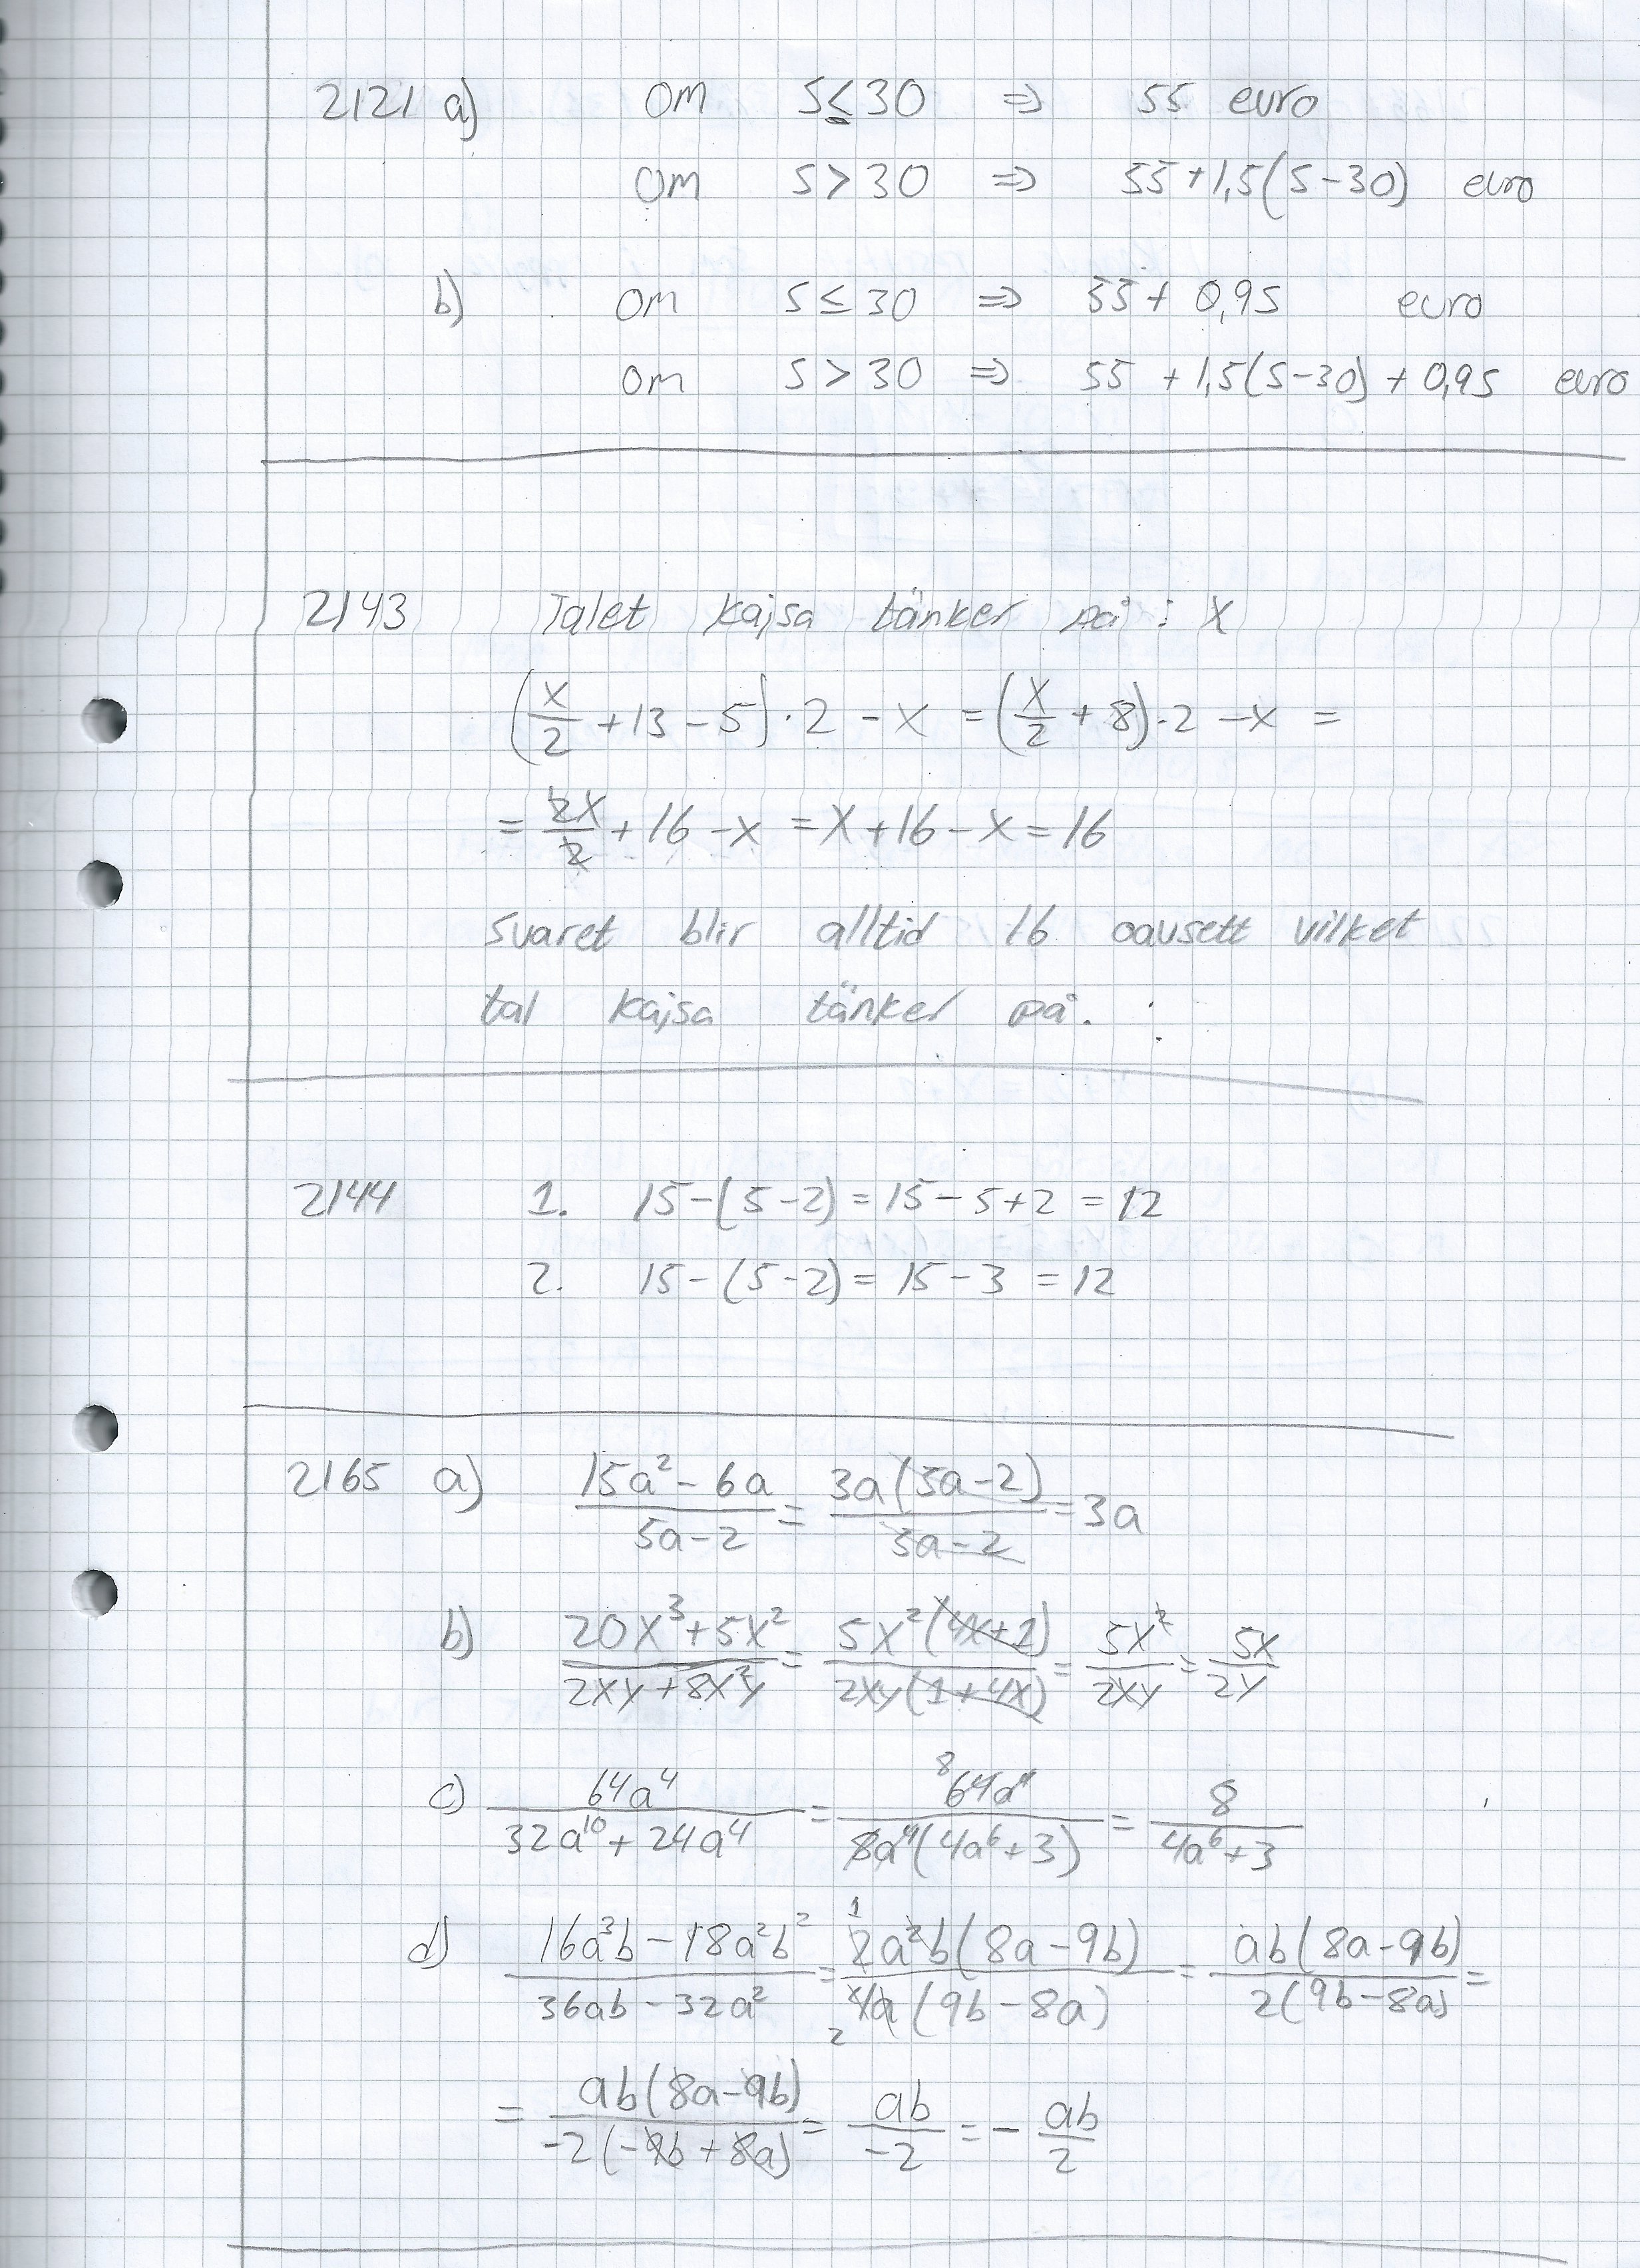 2121 a) om S≤30 ⇒ 55 euro
om S>30 ⇒ 55+1,5(S-30) euro
b) om S≤30 ⇒ 55+0,9S euro
om S>30 ⇒ 55+1,5(S-30)+0,9S euro
2143 Talet kajsa tänker på: x
(x/2 +13-5)·2 -x = (x/2 +8)·2 -x =
= 2x/2 +16-x = x+16-x = 16
svaret blir alltid 16 oavsett vilket
tal kajsa tänker på.
2144 1. 15-(5-2) = 15-5+2 = 12
2. 15-(5-2) = 15-3 = 12
2165 a) (15a²-6a)/(5a-2) = 3a(5a-2)/(5a-2) = 3a
b) (20x³+5x²)/(2xy+8x²y) = 5x²(4x+1)/(2xy(1+4x)) = 5x²/2xy = 5x/2y
c) 64a⁴/(32a¹⁰+24a⁴) = 8 64a⁴/(8a⁴(4a⁶+3)) = 8/(4a⁶+3)
d) (16a³b-18a²b²)/(36ab-32a²) = 1 2a²b(8a-9b)/(2 4a(9b-8a)) = ab(8a-9b)/(2(9b-8a)) =
= ab(8a-9b)/(-2(-9b+8a)) = ab/-2 = - ab/2